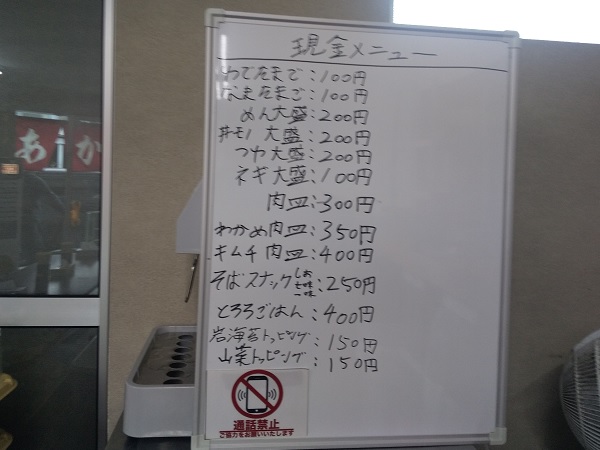 現金メニュー
ゆでたまご:100円
なまたまご:100円
めん大盛:200円
丼モノ 大盛:200円
つゆ大盛:200円
ネギ大盛:100円
肉皿:300円
わかめ肉皿:350円
キムチ肉皿:400円
そばスナック しお 七味 一味:250円
とろろごはん:400円
岩海苔トッピング:150円
山菜トッピング:150円
通話禁止
ご協力をお願いいたします
あ
か